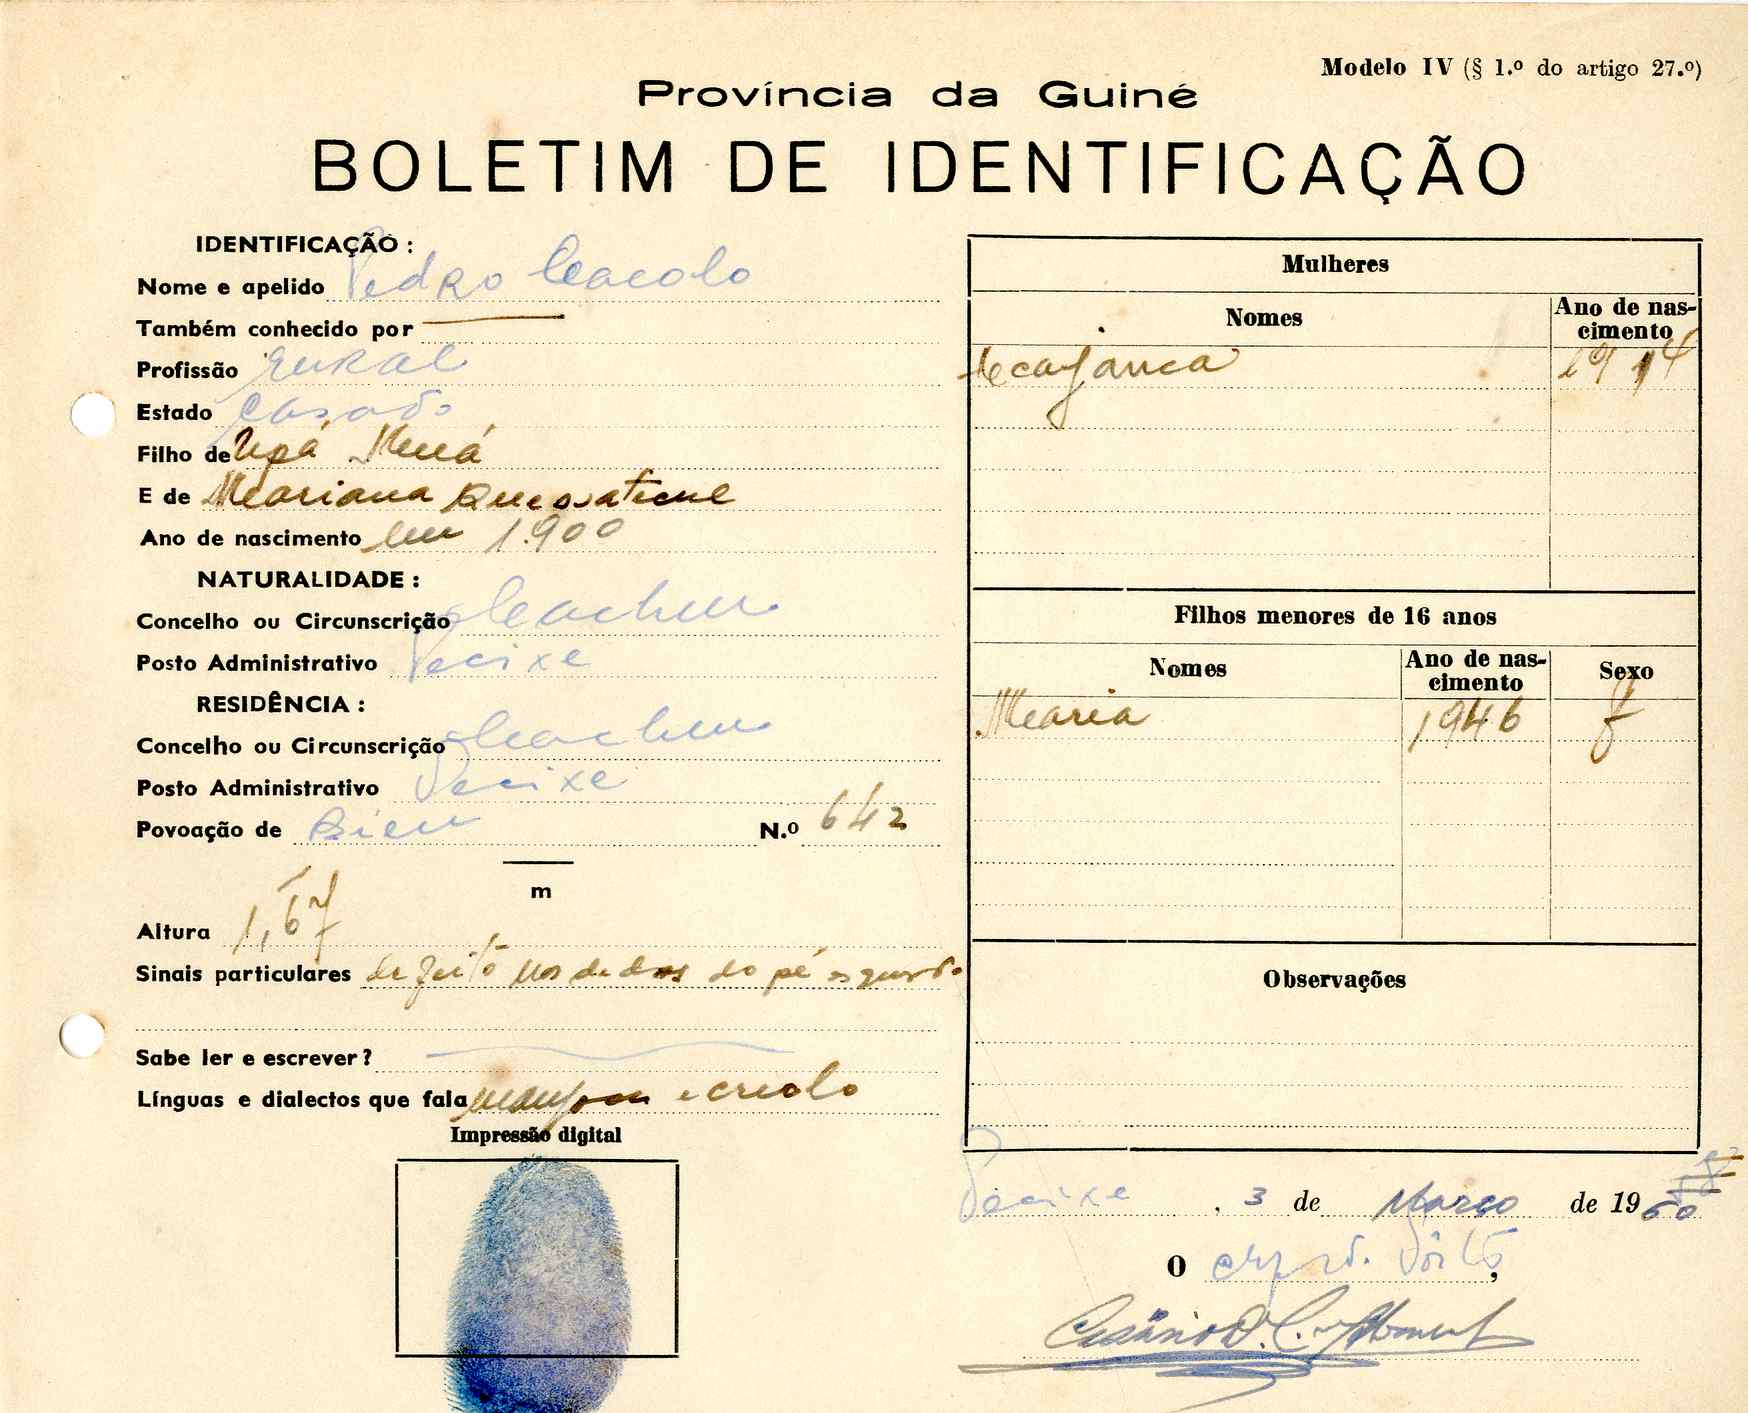 Modelo IV (§ 1.º do artigo 27.º)
Província da Guiné
BOLETIM DE IDENTIFICAÇÃO
IDENTIFICAÇÃO :
Nome e apelido Pedro
Também conhecido por
Profissão rural
Estado casado
Filho de
E de Mariana
Ano de nascimento em 1.900
NATURALIDADE :
Concelho ou Circunscrição Cacheu
Posto Administrativo Pecixe
RESIDÊNCIA :
Concelho ou Circunscrição Cacheu
Posto Administrativo Pecixe
Povoação de N.º 642
m
Altura 1,67
Sinais particulares defeito nos dedos do pé esquerdo
Sabe ler e escrever?
Línguas e dialectos que fala e creolo
Impressão digital
Mulheres
Nomes Ano de nas-
cimento
1914
Filhos menores de 16 anos
Nomes Ano de nas-
cimento Sexo
Maria 1946 f
Observações
Pecixe , 3 de Março de 1960
O